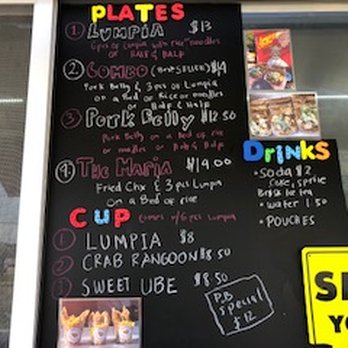 PLATES
1. LUMPIA $13
6pcs of Lumpia with rice noodles
or Half & Half
2. COMBO (BESTSELLER) $14
Pork Belly & 3 pcs of Lumpia
on a Bed of Rice or noodles
or Half & Half
3. Pork Belly 12.50
Pork Belly on a Bed of rice
or noodles or Half & Half
4. The Mafia $14.00
Fried Chx & 3 pcs Lumpia
on a Bed of rice
CUP comes w/ 6 pcs Lumpia
1 LUMPIA $8
2 CRAB RANGOON $8.50
3 SWEET UBE $8.50
P.B
Special
$12
Drinks
• Soda $2
Coke, Sprite
Brisk Ice tea
• Water 1.50
• POUCHES
YO